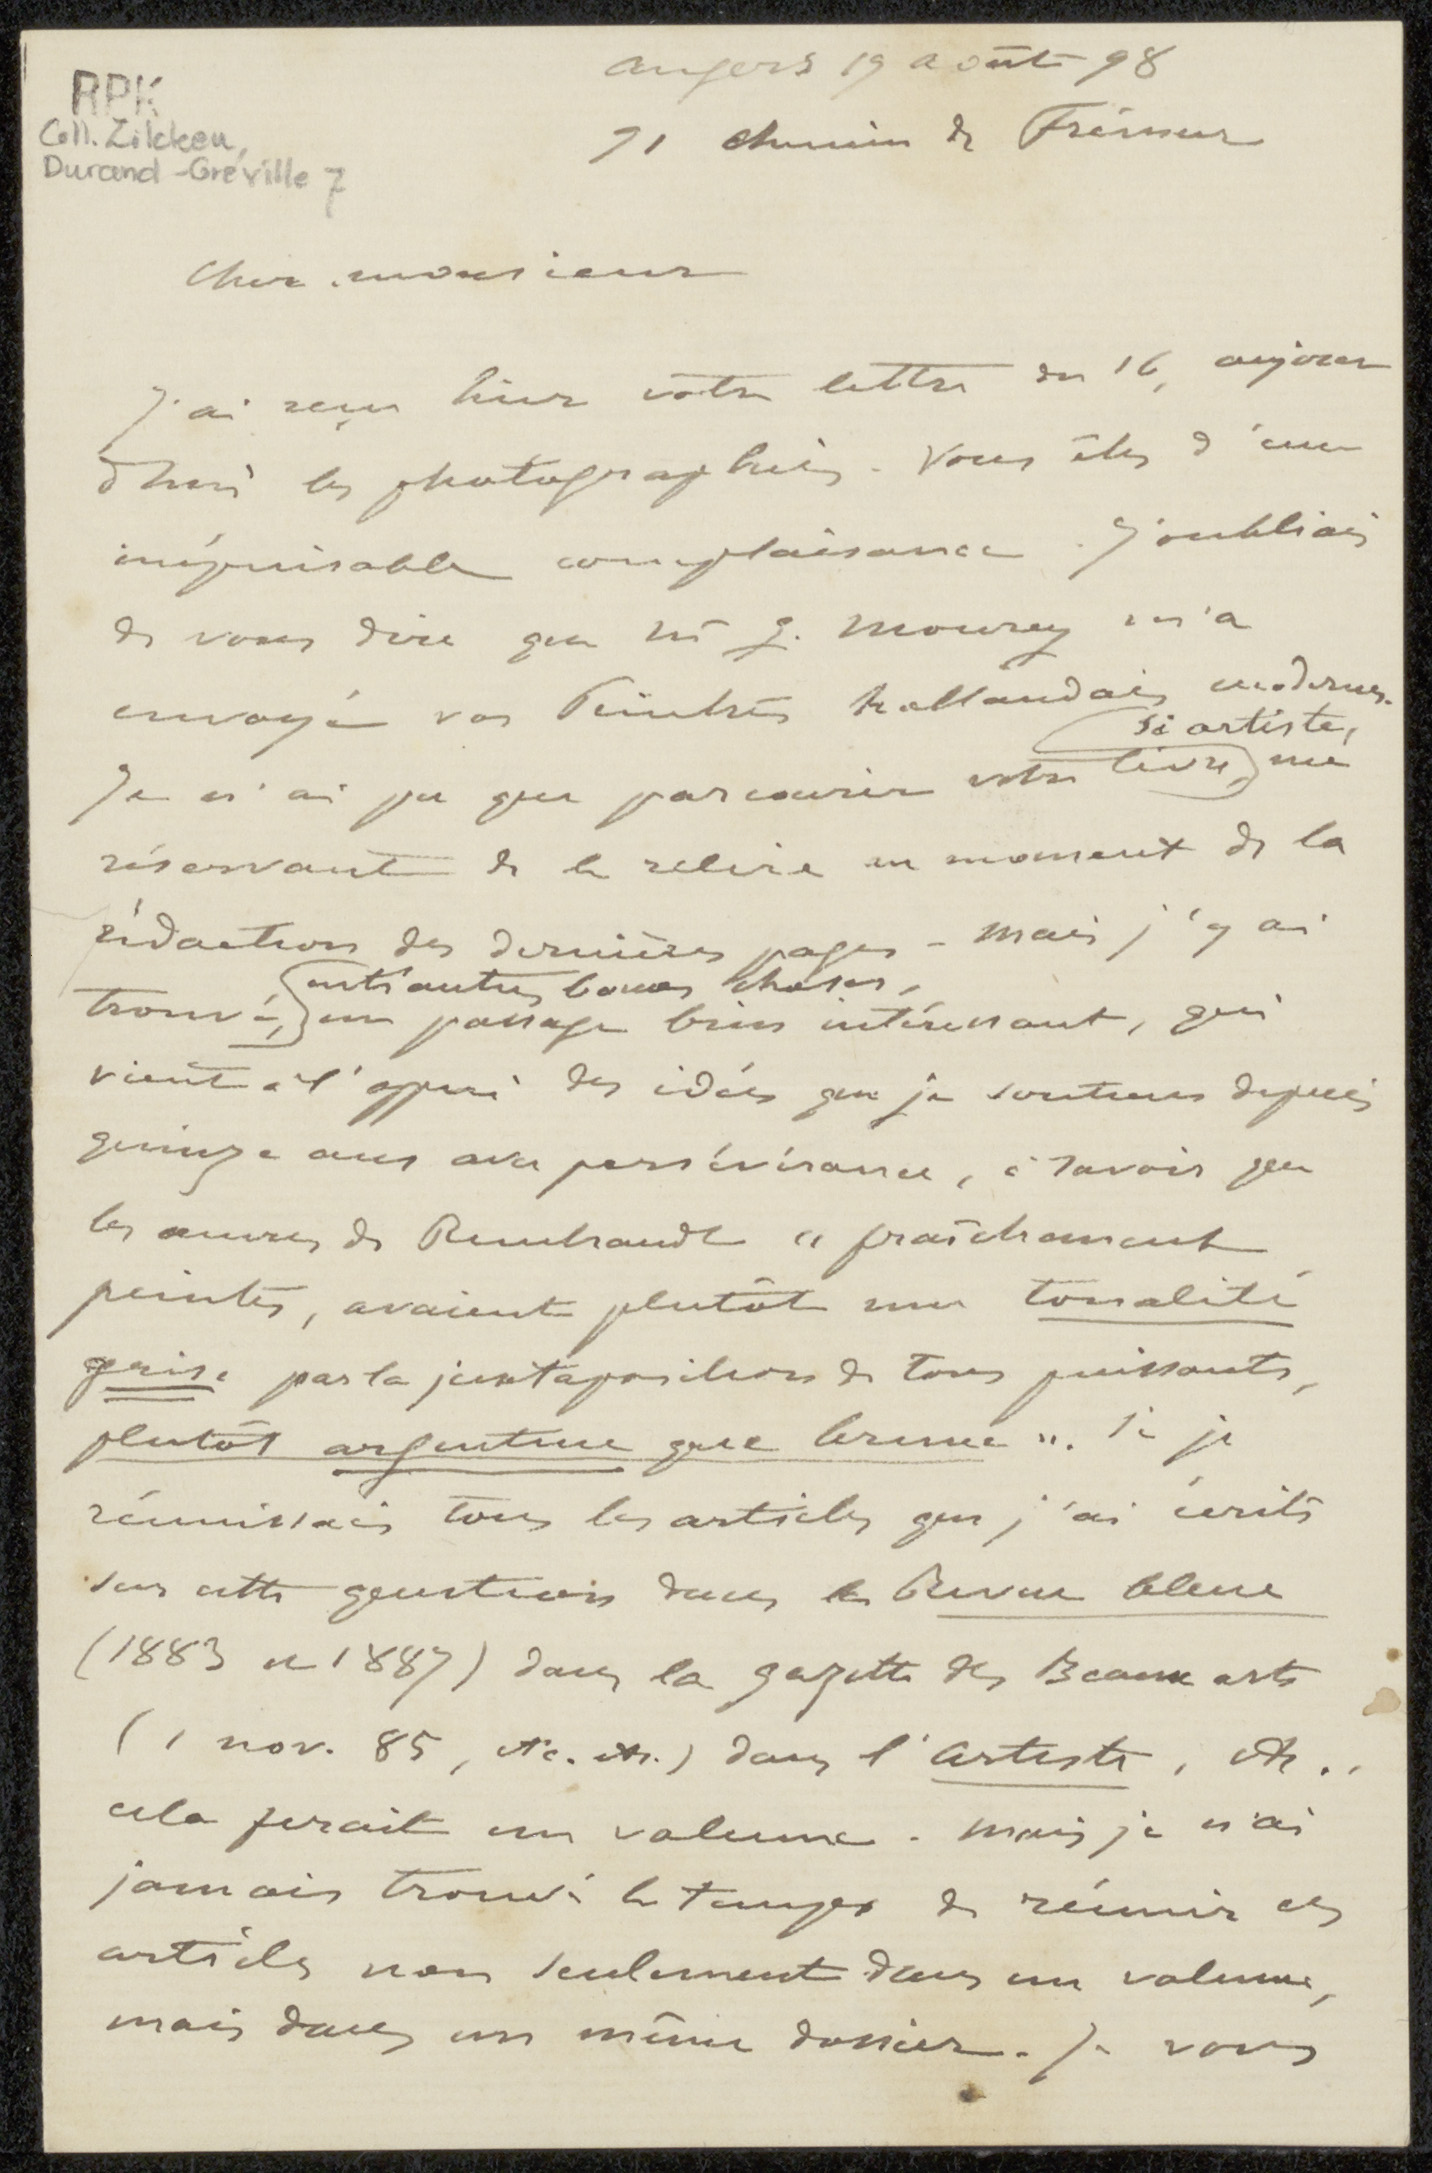 RPK
Coll. Zilcken,
Durand-Gréville 7
Angers 19 août 98
71 chemin de Frémur
Cher monsieur
J'ai reçu hier votre lettre du 16, aujour
d'hui les photographies. Vous êtes d'une
inépuisable complaisance. J'oubliais
de vous dire que Mr G. Mourey m'a
envoyé vos Peintres hollandais modernes.
si artiste,
Je n'ai pu que parcourir votre livre, me
réservant de le relire au moment de la
rédaction des dernières pages - mais j'y ai
entr'autres bonnes choses,
trouvé, un passage bien intéressant, qui
vient à l'appui des idées que je soutiens depuis
quinze ans avec persévérance, à savoir que
les œuvres de Rembrandt « fraîchement
peintes, avaient plutôt une tonalité
grise par la juxtaposition de tons puissants,
plutôt argentine que brune ». Si je
réunissais tous les articles que j'ai écrits
sur cette question dans la Revue bleue
(1883 et 1887) dans la gazette des Beaux arts
(1 nov. 85, etc. etc.) dans l'artiste, etc..
cela ferait un volume. Mais je n'ai
jamais trouvé le temps de réunir ces
articles non seulement dans un volume,
mais dans un même dossier. Je vous